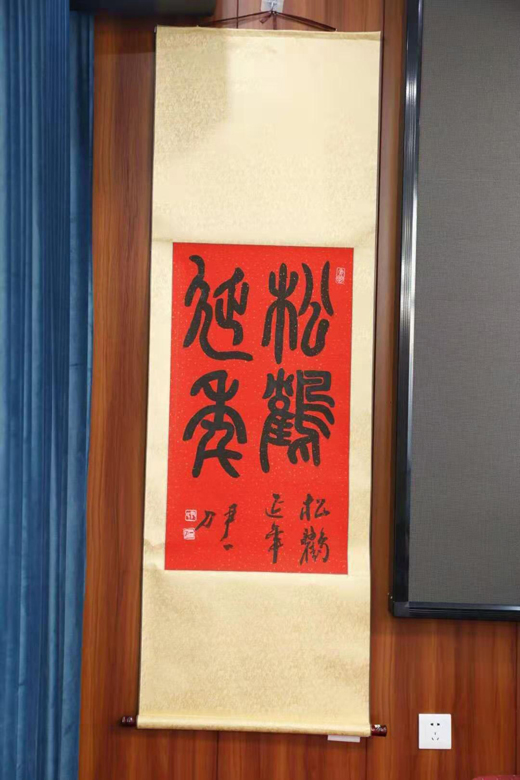 松鶴
延年
松鶴
延年